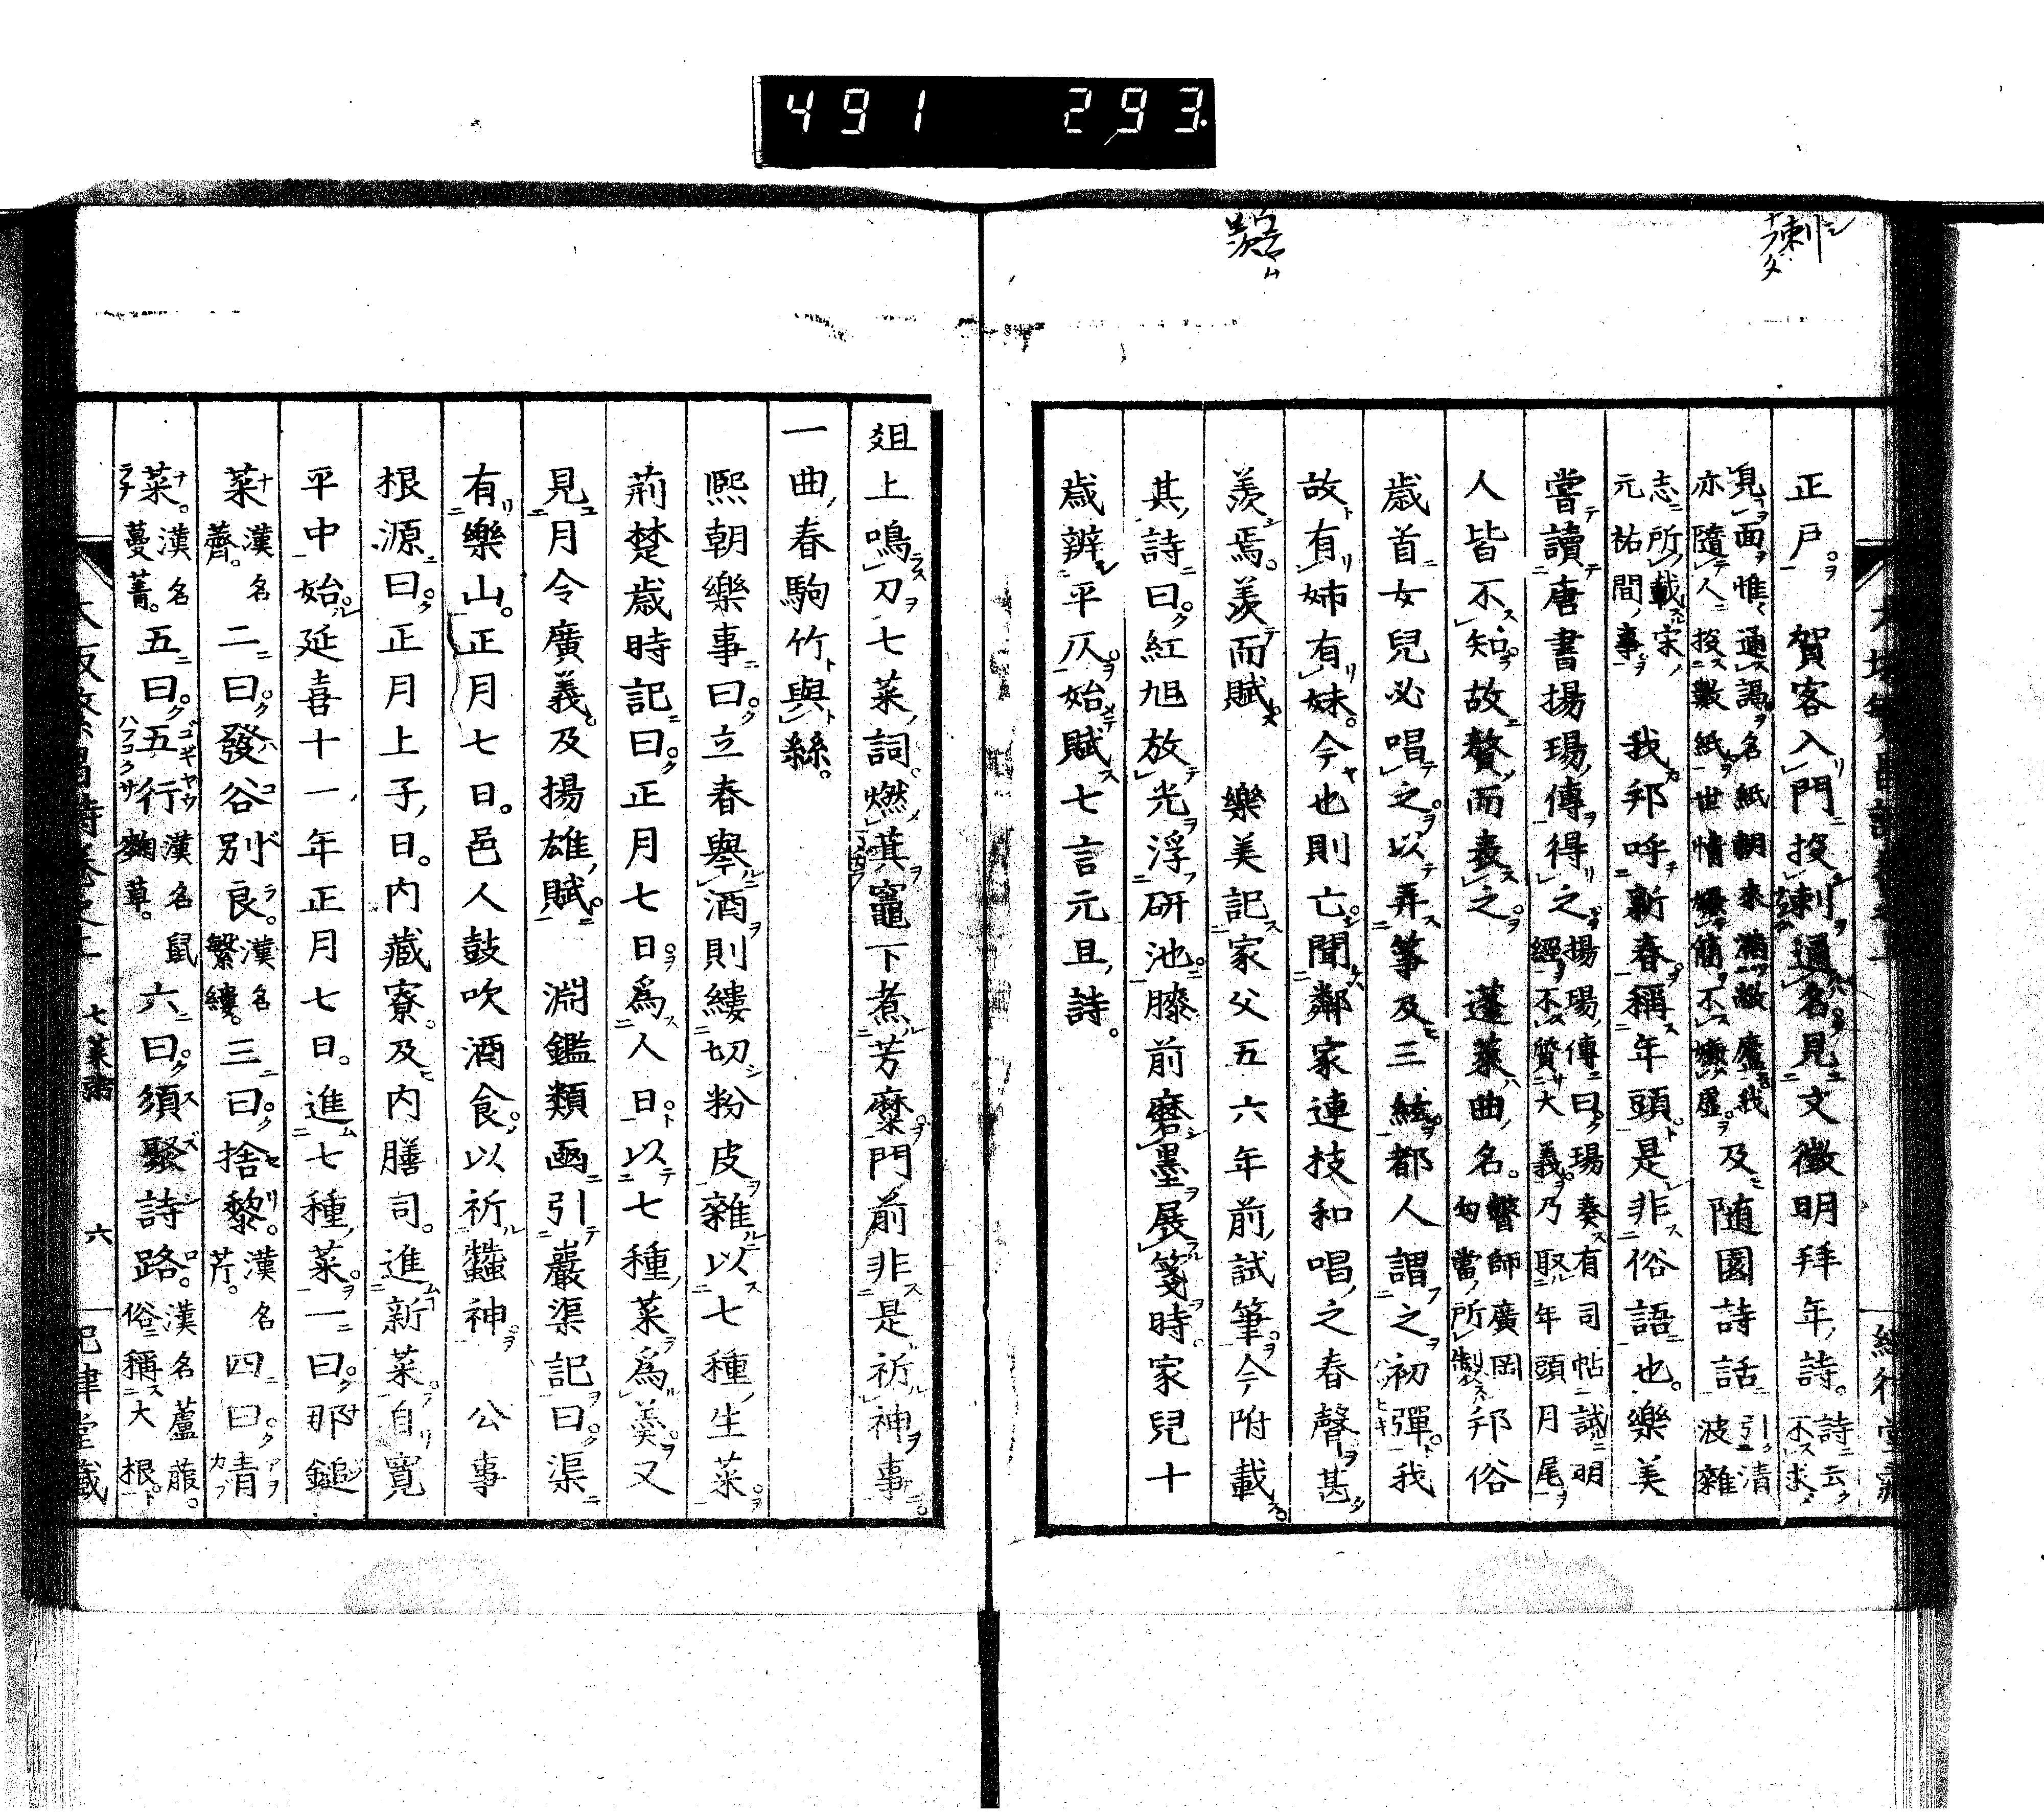 491 293
刺
羨
正戶。賀客入門投刺通名見文徵明拜年詩。詩云不求
見面惟通謁名紙朝來滿敝廬我亦隨人投數紙世情嫌簡不嫌虛。及随園詩話引清波雜
志所載宋元祐間事我邦呼新春稱年頭是非俗語也。樂美
嘗讀唐書揚瑒傳得之揚瑒傳曰瑒奏有司帖試明經不質大義乃取年頭月尾
人皆不知故贅而表之蓬萊曲名。瞽師廣岡勾當所製邦俗
歲首女兒必唱之以弄箏及三絃都人謂之初彈我
故有姉有妹。今也則亡聞鄰家連枝和唱之春聲甚
羨焉。羨而賦樂美記家父五六年前試筆今附載
其詩曰紅旭放光浮硏池膝前磨墨展箋時。家兒十
歲辨平仄始賦七言元旦詩。
俎上鳴刀七菜詞燃萁竈下煮芳糜門前非是祈神事
一曲春駒竹與絲。
熙朝樂事曰立春擧酒則縷切粉皮雜以七種生菜
荊楚歲時記曰正月七日爲人日以七種菜爲羹又
見月令廣義及揚雄賦淵鑑類函引巖渠記曰渠
有樂山。正月七日。邑人鼓吹酒食以祈蠶神公事
根源曰正月上子日。内藏寮。及内膳司。進新菜自寬
平中始延喜十一年正月七日。進七種菜一曰那鎚
菜漢名薺。二曰發谷別良。漢名繁縷。三曰捨黎。漢名芹。四曰青
菜。漢名蔓菁。五曰五行漢名鼠麴草。六曰須聚詩路。漢名蘆菔。俗稱大根
七菜粥
六